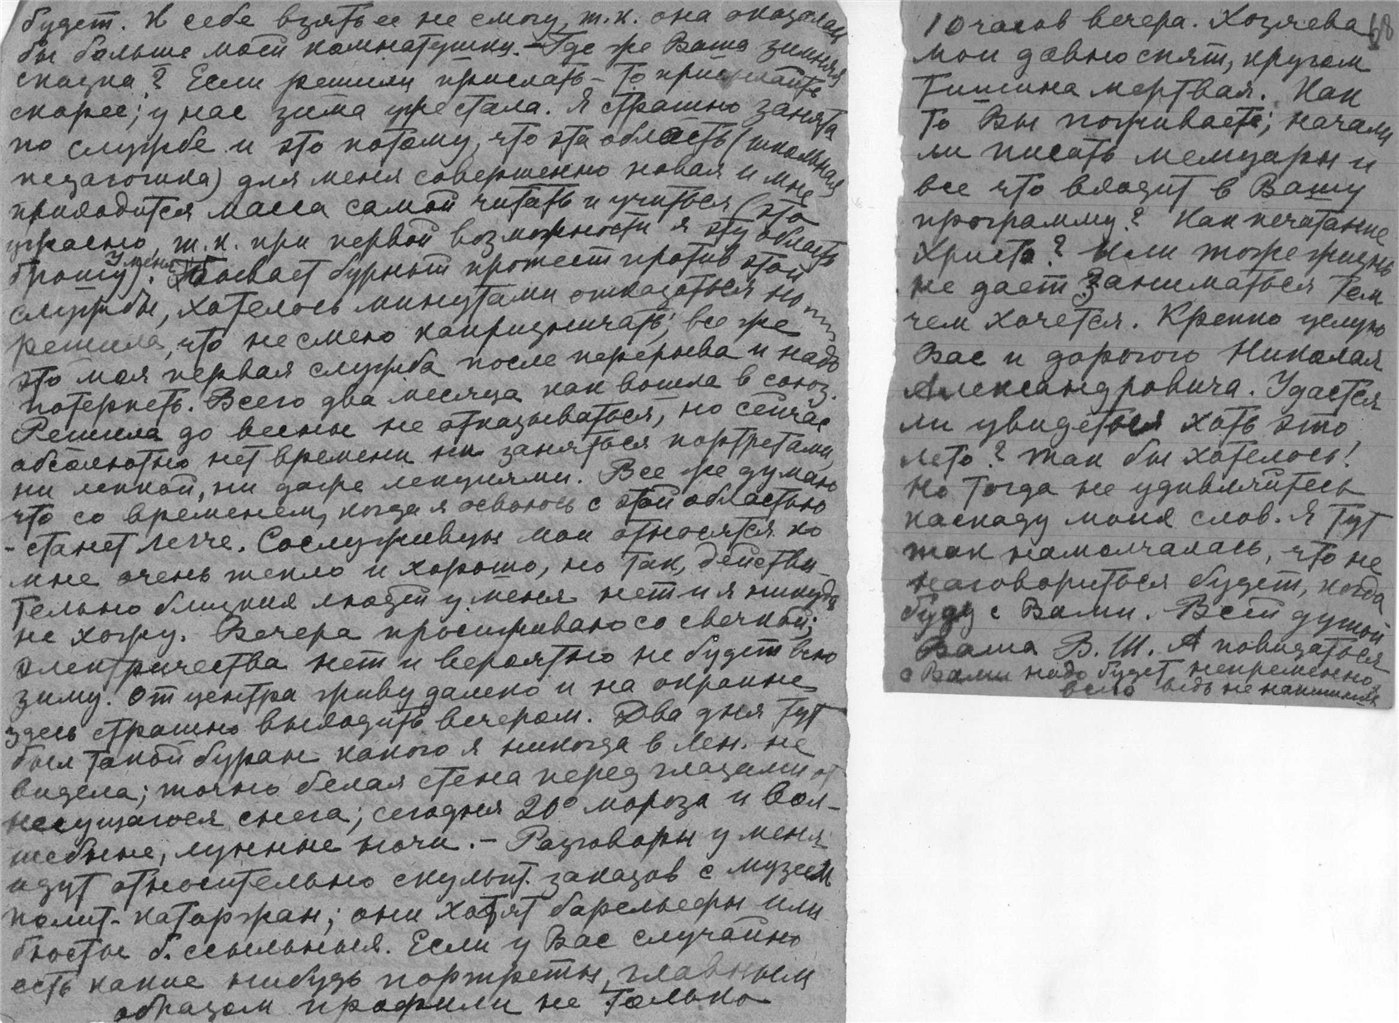 будет. К себе взять ее не смогу, т.к. она оказалась
бы больше моей комнатушки. – Где же Ваша зимняя
сказка? Если решили прислать – то присылайте
скорее; у нас зима уже стала. Я страшно занята
по службе и это потому, что эта область (школьная
педагогика) для меня совершенно новая и мне
приходится масса самой читать и учиться (это
ужасно, т.к. при первой возможности я эту область
брошу). У меня бывает бурный протест против этой
службы, хотелось минутами отказаться но
решила, что не смею капризничать; все же
это моя первая служба после перерыва и надо
потерпеть. Всего два месяца как вошла в союз.
Решила до весны не отказываться, но сейчас
абсолютно нет времени ни заняться портретами,
ни лепкой, ни даже лекциями. Все же думаю
что со временем, когда я освоюсь с этой областью
- станет легче. Сослуживцы мои относятся ко
мне очень тепло и хорошо, но так, действи-
тельно близких людей у меня нет и я никуда
не хожу. Вечера просиживаю со свечкой;
электричества нет и вероятно не будет всю
зиму. От центра живу далеко и на окраине
здесь страшно выходить вечером. Два дня тут
был такой буран какого я никогда в Лен. не
видела; точно белая стена перед глазами от
несущагося снега; сегодня 20° мороза и вол-
шебные, лунные ночи. – Разговоры у меня
идут относительно скульпт. заказов с музеем
полит-каторжан; они хотят барельефы или
бюсты б. ссыльных. Если у Вас случайно
есть какие нибудь портреты, главным
образом профили не только
10 часов вечера. Хозяева
мои давно спят, кругом
тишина мертвая. Как
то Вы поживаете; начали
ли писать мемуары и
все что входит в Вашу
программу? Как печатание
Христа? Или тоже жизнь
не дает заниматься тем
чем хочется. Крепко целую
Вас и дорогого Николая
Александровича. Удастся
ли увидеться хоть это
лето? Так бы хотелось!
Но тогда не удивляйтесь
каскаду моих слов. Я тут
так намолчалась, что не
наговориться будет, когда
буду с Вами. Всей душой
Ваша В. Ш. А повидаться
с Вами надо будет непременно
всего ведь не напишешь